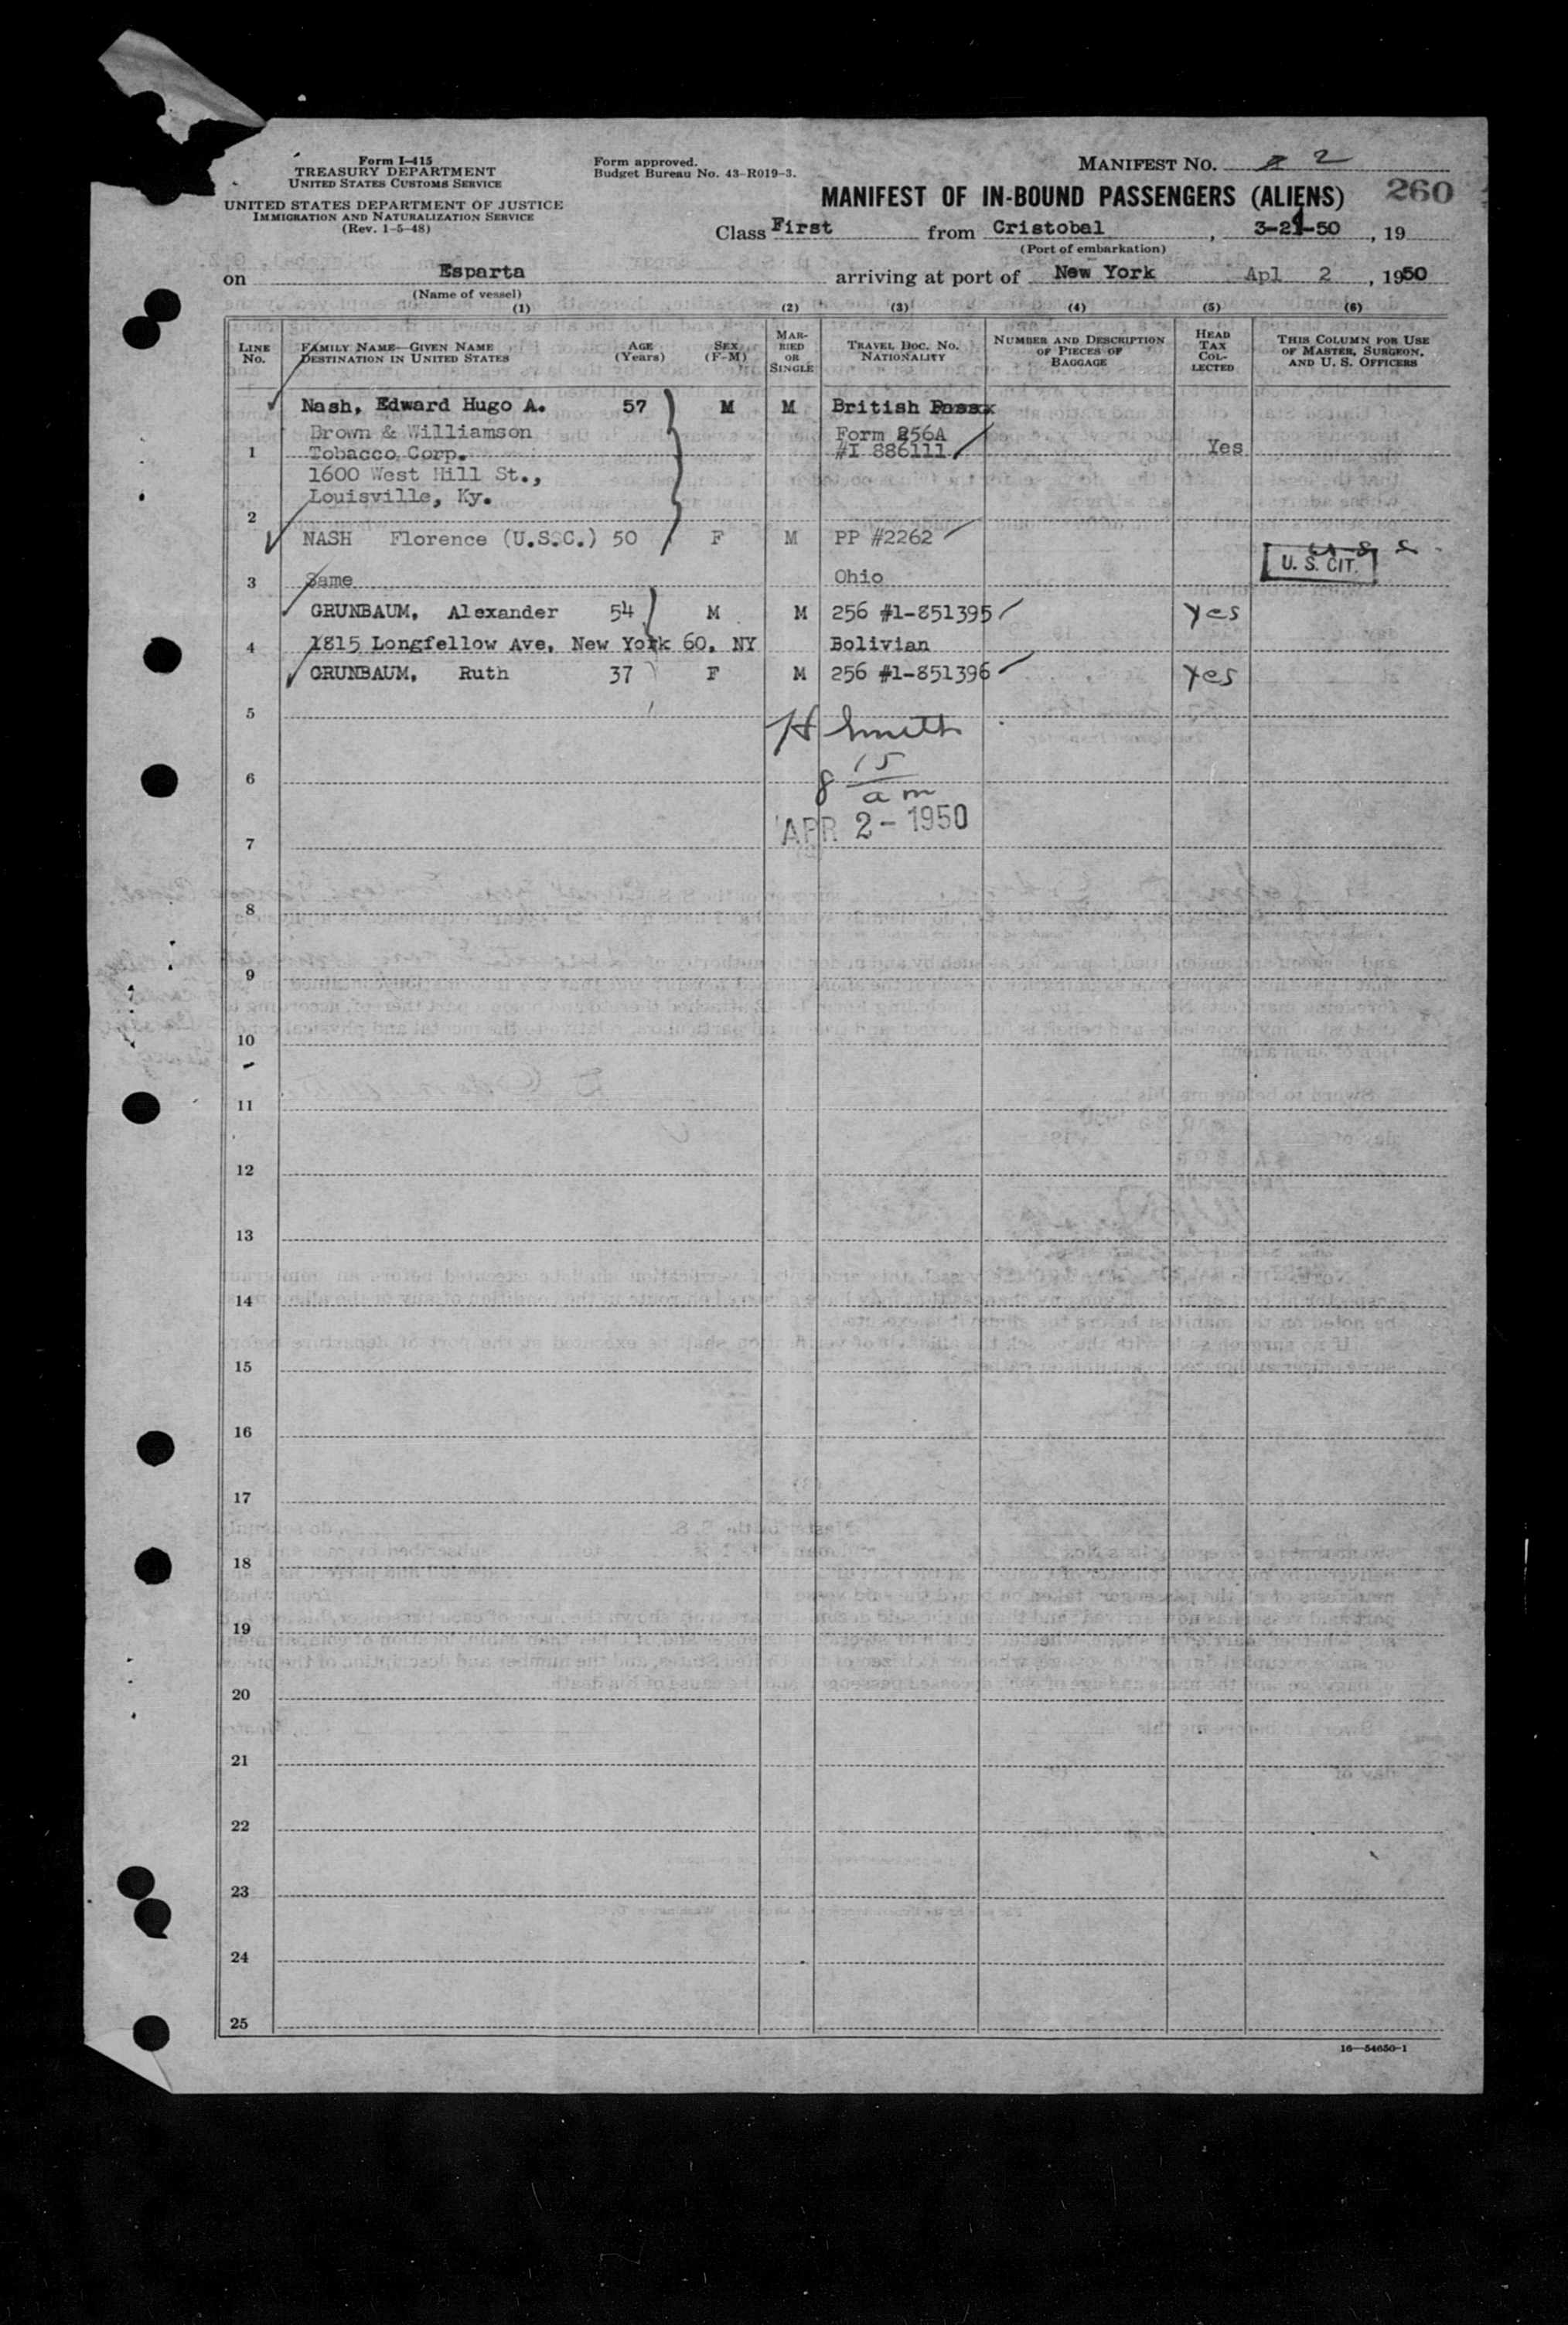 Form I-415
TREASURY DEPARTMENT
UNITED STATES CUSTOMS SERVICE
UNITED STATES DEPARTMENT OF JUSTICE
IMMIGRATION AND NATURALIZATION SERVICE
(Rev. 1-5-48)
Form approved.
Budget Bureau No. 43-R019-3.
MANIFEST NO. 2
MANIFEST OF IN-BOUND PASSENGERS (ALIENS) 260
Class First from Cristobal, 3-21-50, 19
(Port of embarkation)
on Esparta arriving at port of New York Apl 2, 1950
(Name of vessel)
(1) (2) (3) (4) (5) (6)
LINE NO.
FAMILY NAME—GIVEN NAME
DESTINATION IN UNITED STATES
AGE (Years)
SEX (F-M)
MARRIED OR SINGLE
TRAVEL DOC. NO. NATIONALITY
NUMBER AND DESCRIPTION OF PIECES OF BAGGAGE
HEAD TAX COLLECTED
THIS COLUMN FOR USE OF MASTER, SURGEON, AND U. S. OFFICERS
Nash, Edward Hugo A. 57 M M British
Brown & Williamson Form 256A
1 Tobacco Corp. #I 886111 Yes
1600 West Hill St.,
Louisville, Ky.
2
NASH Florence (U.S.C.) 50 F M PP #2262
U. S. CIT.
3 Same Ohio
GRUNBAUM, Alexander 54 M M 256 #1-851395 Yes
4 1815 Longfellow Ave, New York 60, NY Bolivian
GRUNBAUM, Ruth 37 F M 256 #1-851396 Yes
5
H Smith
6 8 15 am
APR 2 - 1950
7
8
9
10
11
12
13
14
15
16
17
18
19
20
21
22
23
24
25
16—54650-1